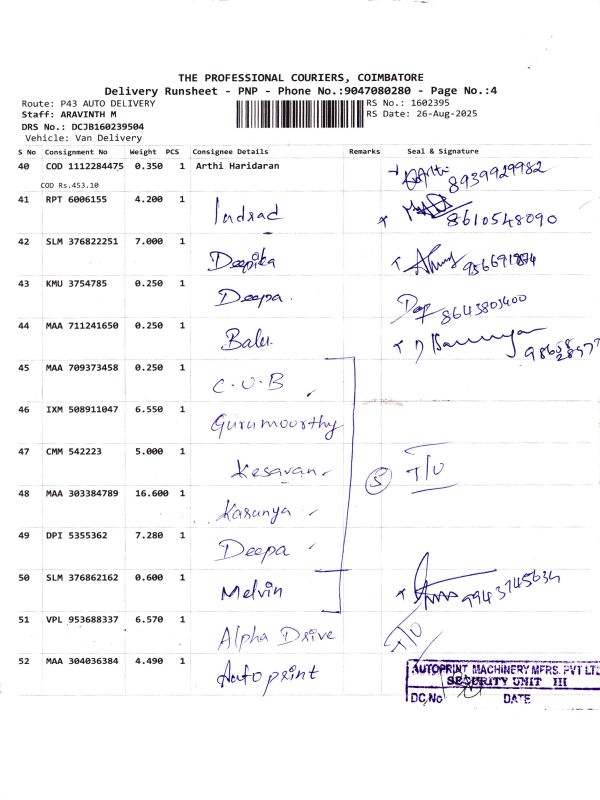 THE PROFESSIONAL COURIERS, COIMBATORE
Delivery Runsheet - PNP - Phone No.:9047080280 - Page No.:4
Route: P43 AUTO DELIVERY RS No.: 1602395
Staff: ARAVINTH M RS Date: 26-Aug-2025
DRS No.: DCJB160239504
Vehicle: Van Delivery
S No Consignment No Weight PCS Consignee Details Remarks Seal & Signature
40 COD 1112284475 0.350 1 Arthi Haridaran 8939929982
COD Rs.453.10
41 RPT 6006155 4.200 1 Indrad 8610548090
42 SLM 376822251 7.000 1 Deepika
43 KMU 3754785 0.250 1 Deepa. 8643803400
44 MAA 711241650 0.250 1 Balu
45 MAA 709373458 0.250 1 C.U.B
46 IXM 508911047 6.550 1 Gurumoorthy
47 CMM 542223 5.000 1 Kesavan 5 T/O
48 MAA 303384789 16.600 1 Karunya
49 DPI 5355362 7.280 1 Deepa
50 SLM 376862162 0.600 1 Melvin 9943745634
51 VPL 953688337 6.570 1 Alpha Drive T/O
52 MAA 304036384 4.490 1 Autoprint
AUTOPRINT MACHINERY MFRS. PVT LTD
SECURITY UNIT III
DC,No DATE